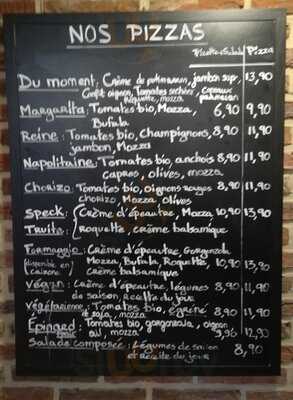 NOS PIZZAS
Pizzetta+Salade Pizza
Du moment: Crème de potimarron, jambon sup., 13,90
Confit oignon, Tomates séchées, copeaux
Roquette, mozza parmesan
Margarita: Tomates bio, Mozza, 6,90 9,90
Bufala
Reine: Tomates bio, Champignons, 8,90 11,90
jambon, Mozza
Napolitaine: Tomates bio, anchois 8,90 11,90
capres, olives, mozza
Chorizo: Tomates bio, Oignons rouges 8,90 11,90
chorizo, Mozza, Olives
Speck: Crème d'épeautre, Mozza, 10,90 13,90
Truite: Roquette, crème balsamique
Formaggio: Crème d'épeautre, Gorgonzola,
(disponible en Mozza, Bufala, Roquette, 10,90 13,90
Calzone) crème balsamique
Végan: Crème d'épeautre, légumes 8,90 11,90
de saison, recette du jour
Végétarienne: Tomates bio, égréné 8,90 11,90
de soja, mozza
Epinard: Tomates bio, gorgonzola, oignon
ail, mozza 9,90 12,90
Salade composée: Légumes de saison 8,90
et recette du jour